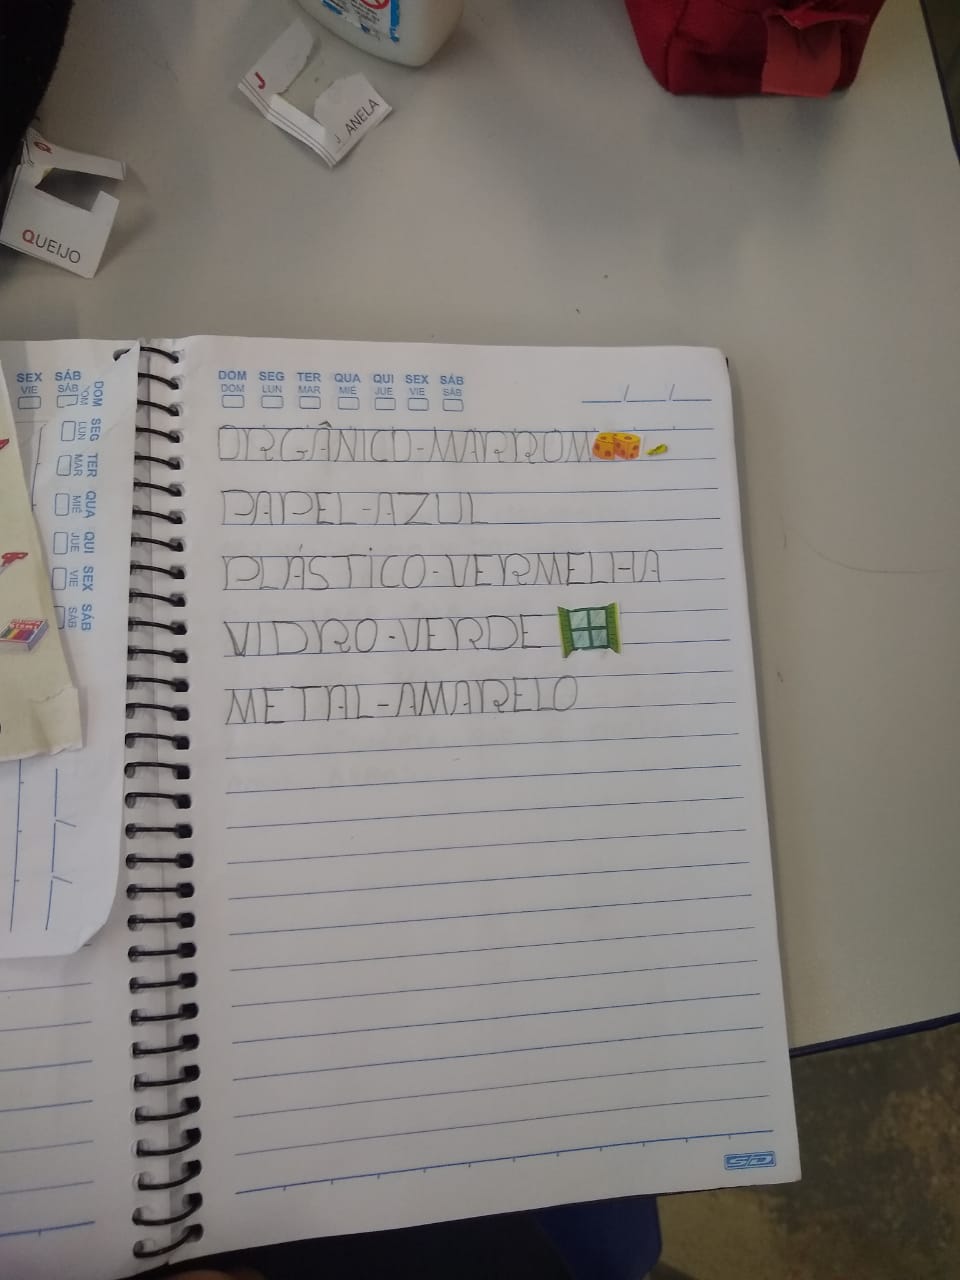 J
J ANELA
Q
QUEIJO
SEX SÁB
VIE SÁB
DOM SEG TER QUA QUI SEX SÁB
DOM LUN MAR MIÉ JUE VIE SÁB
DOM SEG TER QUA QUI SEX SÁB
DOM LUN MAR MIÉ JUE VIE SÁB
___/___/___
ORGÂNICO-MARROM
PAPEL-AZUL
PLÁSTICO-VERMELHA
VIDRO-VERDE
METAL-AMARELO
SD